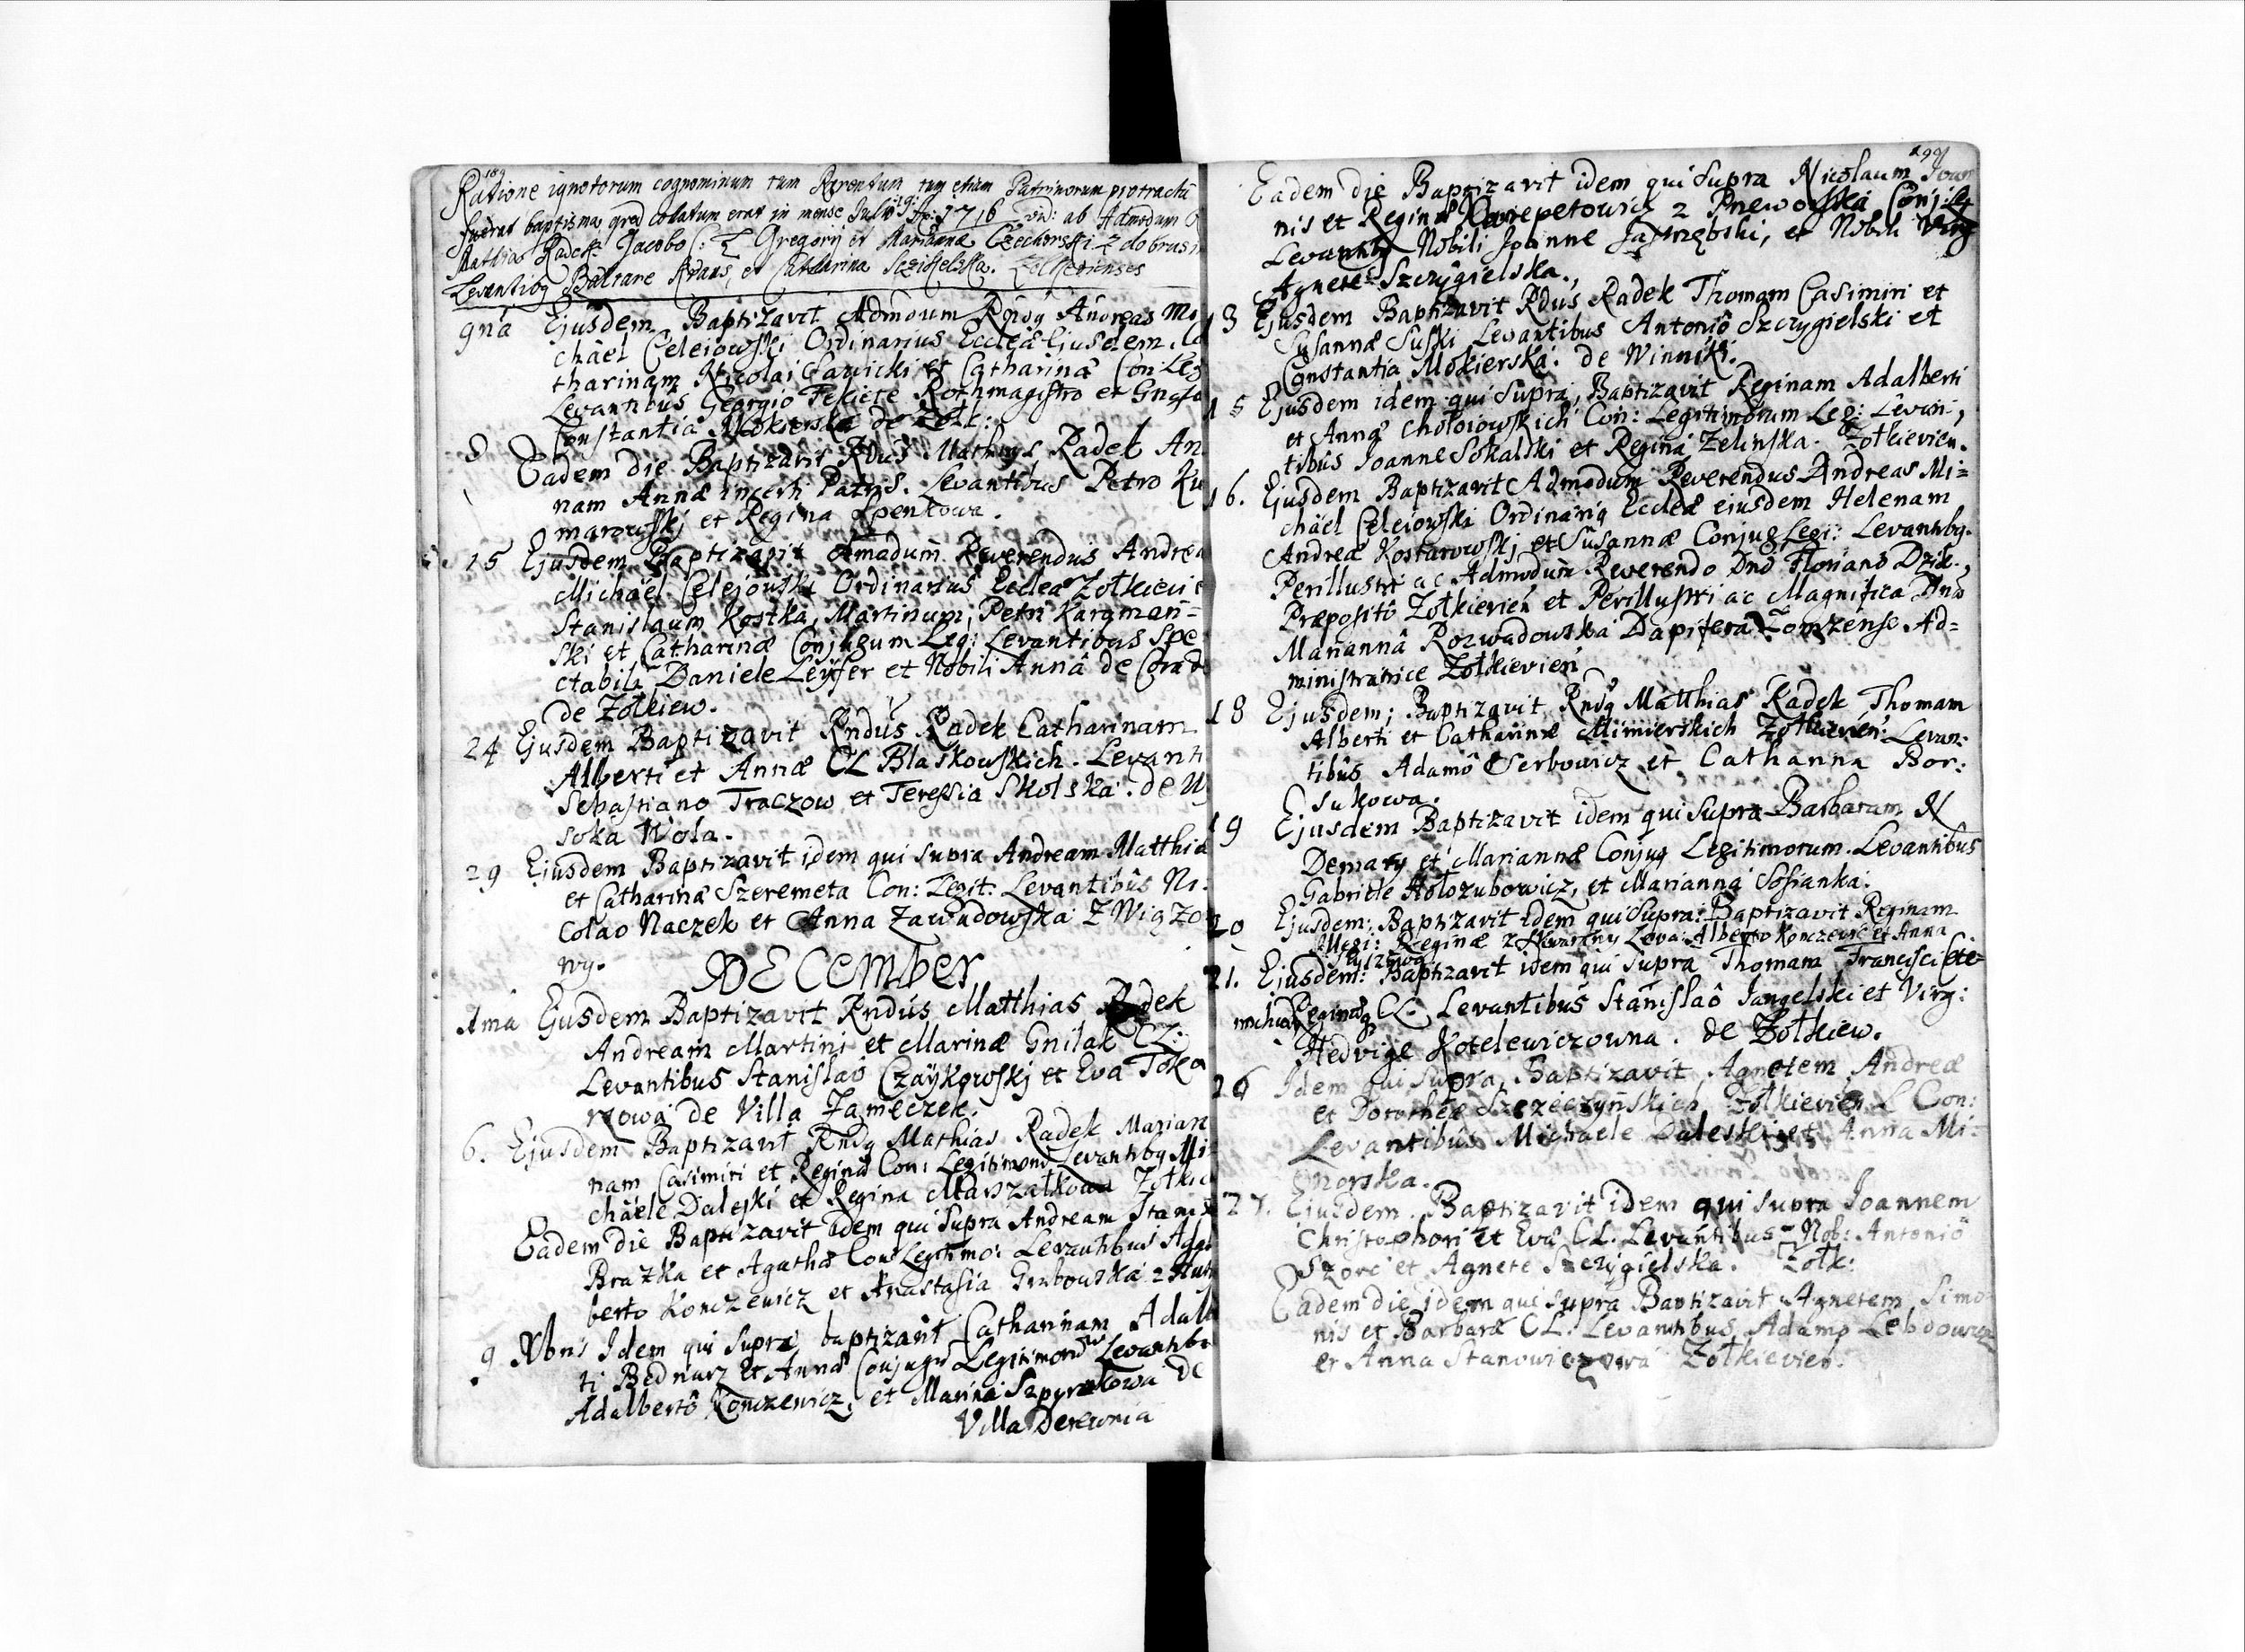 189
Ratione ignotorum cognominum tam Parentum tum etiam Patrinorum protractũ
fuerat baptisma qnd colatum erat in mense Julio 19: Ao: 1716 vid: ab Admodum
Mathia Radek Jacobo Gregorij et Mariannæ Czechorski z dobrusi
Levantibq Baltzare Kraus, et Catharina Sczikelska. Zolkevienses
gna Ejusdem Baptizavit Admdum Rndq Andreas Mi
chäel Celeiowski Ordinarius Ecclæ Ejusdem. Ca
tharinam Nicolai Gawicki et Catharinæ Con: Leg
Levantibus Georgio Fekiete Rothmagistro et Gnosa
Constantia Mokierska de Zołk:
8 Eadem die Baptizavit Rdus Mathias Radek An
nam Annæ incerti Patris. Levantibus Petro Ku
marowskj et Regina Spenkowa.
15 Ejusdem Baptizavit Amadum Reverendus Andrea
Michäel Celejowski Ordinarius Ecclea Zołkievie
Stanislaum Kostka, Martinum, Petri Kargman=
ski et Catharinæ Conjugum Leg: Levantibus Spe
ctabili Daniele Leyser et Nobili Anna de
de Zołkiew.
24 Ejusdem Baptizavit Rndus Radek Catharinam
Alberti et Annæ CL Blaskowskich. Levanti
Sebastiano Traczow et Teressia Skolska. de Wy
soka Wola.
29 Ejusdem Baptizavit idem qui supra Andream Matthiæ
et Catharinæ Szeremeta Con: Legit: Levantibûs Ni
colao Naczek et Anna Zawadowska Z Wiązo
wy.
DECEMBER
Ama Ejusdem Baptizavit Rndus Matthias Radek
Andream Martini et Marinæ Gnilak CL:
Levantibus Stanislao Czaÿkowskj et Eva Toka
rzowa de Villa Zameczek.
6. Ejusdem Baptizavit Rndq Mathias Radek Marian
nam Casimiri et Reginæ Con: Legitimorũ Levantibq Mi
chäele Daleski et Regina Marszałkowa Zołkie
Eadem die Baptizavit idem qui supra Andream Stanis
Brazka et Agathæ Con Legitimo: Levantibus Adal
berto Konczewicz et Anastasia Grabowska z
9 Xbris Idem qui supra baptizavit Catharinam Adalb
ti Bednarz et Annæ Conjugũ Legitimorũ Levantibq
Adalbertô Konczewicz, et Marina Szpyrakowa de
Villa Derewnia
199
Eadem die Baptizavit idem qui supra Nicolaum Ioan
nis et Reginæ z Pnewoska Conj: Leg
Levantibq Nobili Ioanne Jastrzębski, et Nobili Virg
Agnete Szczygielska.
13 Ejusdem Baptizavit Rdus Radek Thomam Casimiri et
Susannæ Suski Levantibus Antoniô Szczygielski et
Constantia Mokierska. de Winniki.
15 Ejusdem idem qui supra, Baptizavit Reginam Adalberti
et Annæ chołoiowskich Con: Legitimorum Leg: Levan,
tibûs Ioanne Sokalski et Regina Zelinska. Zołkievien.
16. Ejusdem Baptizavit Admodum Reverendus Andreas Mi=
chäel Celeiowski Ordinariq Eccleæ ejusdem Helenam
Andreæ Kostarowskj et Susannæ Conjug Legi: Levantibq.
Perillustri ac Admodum Reverendo Dnô Floriano Dzik.,
Præpositô Zołkievień et Perillustri ac Magnifica Dna
Mariannâ Rozwadowska Dapifera Łomzense Ad=
ministratrice Zołkievień
18 Ejusdem; Baptizavit Rndq Matthias Radek Thomam
Alberti et Catharinæ Mimierskich Zołkievień Levan:
tibûs Adamô Serbowicz et Catharina Bor:
sukowa.
19 Ejusdem Baptizavit idem qui supra Barbaram N
Demary et Mariannæ Conjug Legitimorum. Levantibus
Gabriele Hołozubowicz, et Marianna Sosianka.
20 Ejusdem: Baptizavit idem qui Supra: Baptizavit Reginam
Reginæ z Leva: Alberto Konczewic et Anna
21. Ejusdem: Baptizavit idem qui supra Thomam Francisci Cie=
michow Reginæq CL. Levantibus Stanislaô Jangelski et Virg:
Hedvige Kotelewiczowna. de Zołkiew.
26 Idem qui Supra, Baptizavit, Agnetem Andreæ
et Dorotheæ Szczeczyńskich Zołkievień L Con:
Levantibûs Michaele Daleski et Anna Mi=
norska.
27. Ejusdem. Baptizavit idem qui supra Ioannem
Christophori et Evæ CL. Levantibus = Nob: Antoniô
Szorc et Agnete Szczygielska. Zołk:
Eadem die idem qui supra Baptizavit Agnetem Simo
nis et Barbaræ CL. Levantibus Adamo Lebdowicz
et Anna Stanowiczowa Zołkievien.